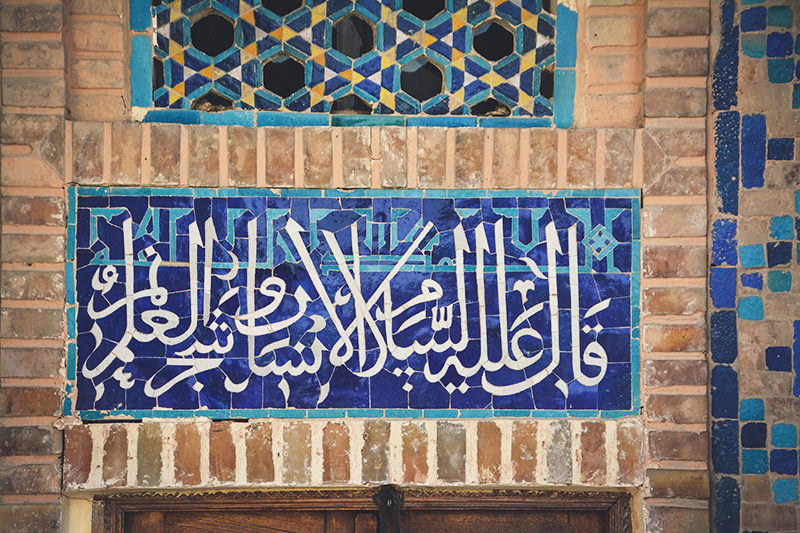 قال علیه السلام الانسان شجر و العلم ثمر